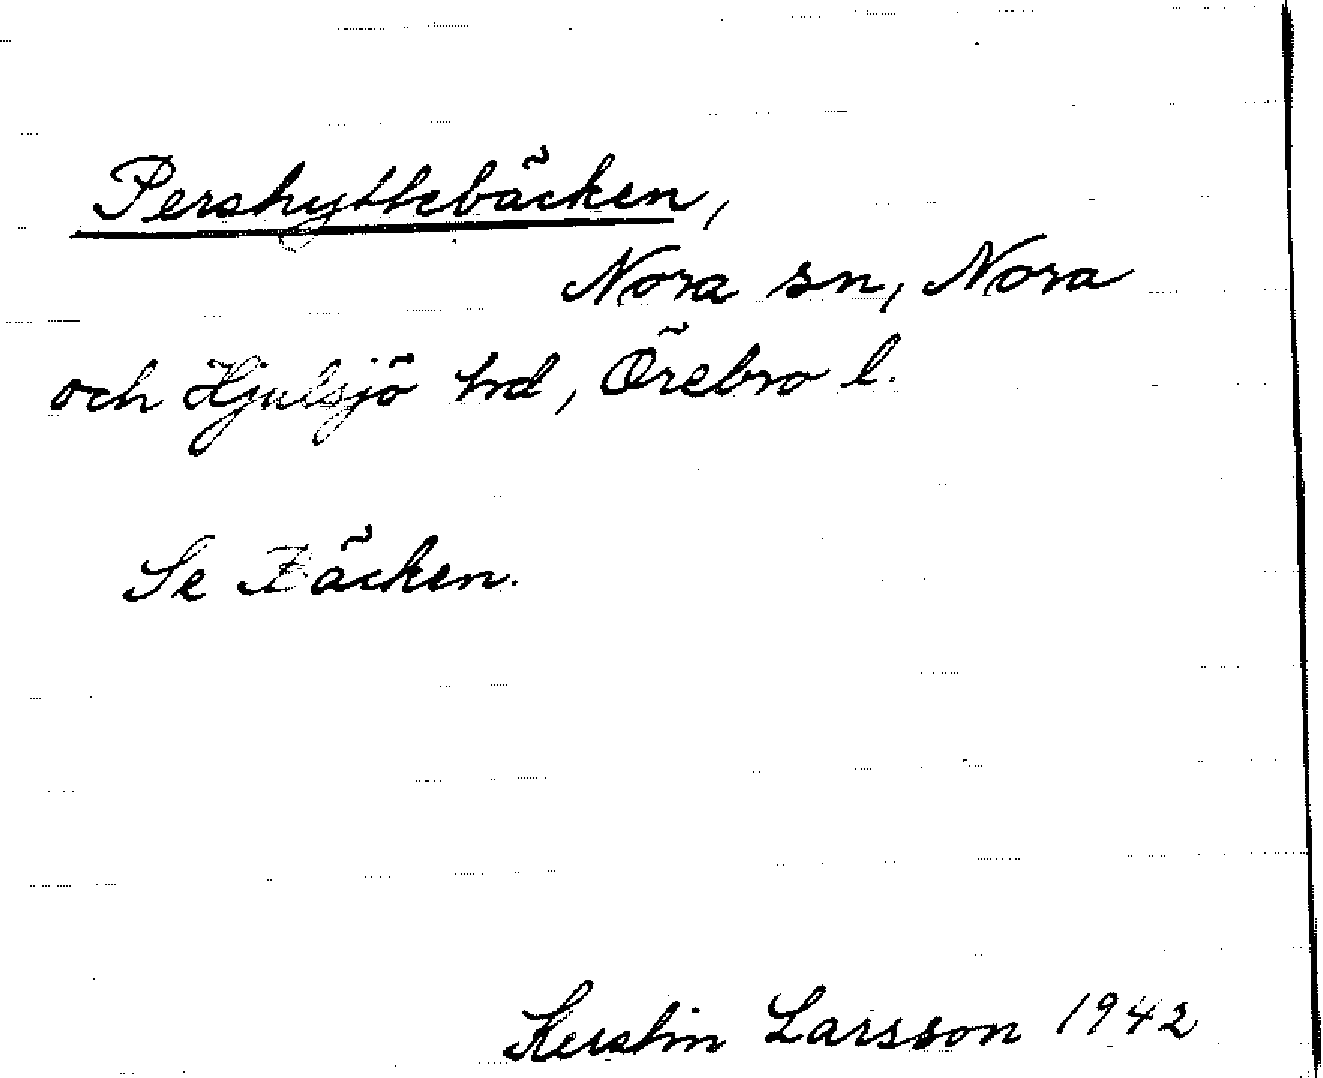 Pershyttebäcken,
Nora sn, Nora
och Hjulsjö hd, Örebro l.
Se Bäcken.
Kerstin Larsson 1942